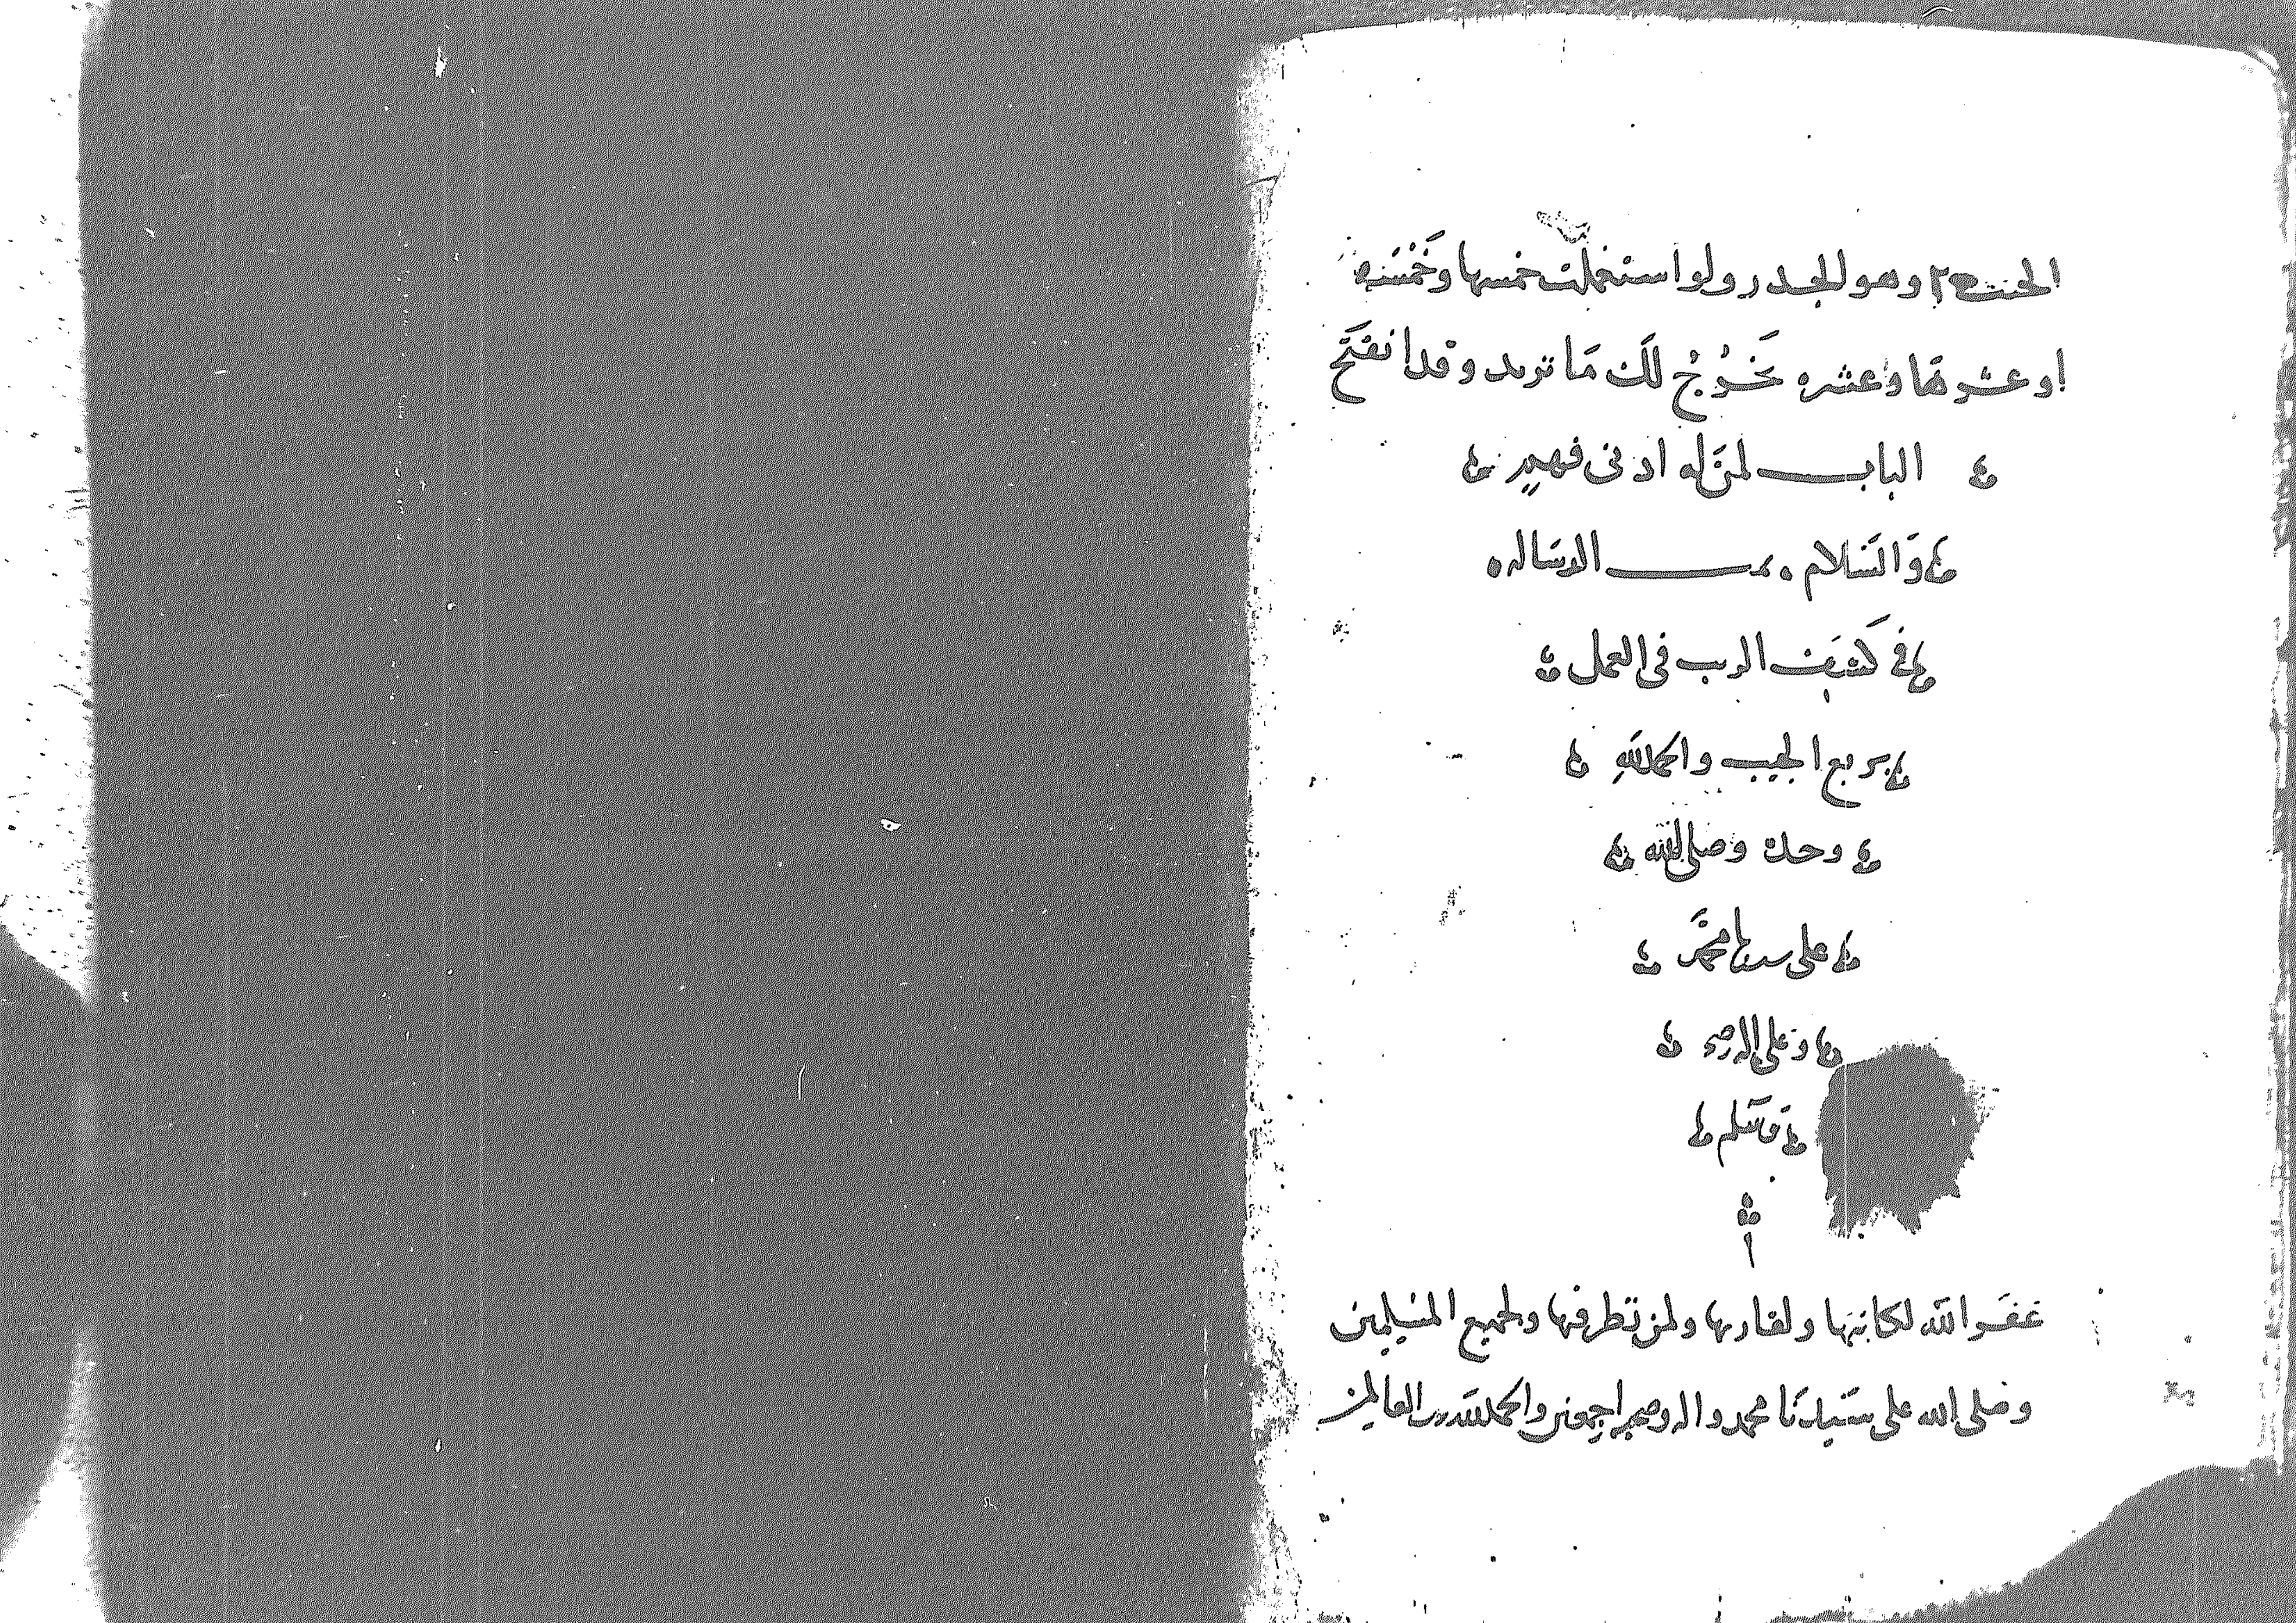 الجيب ٢٥ وهو الجدر ولو استعملت خمسها وخمسه
او عشرها وعشره يخرج لك ما تريد وقد انفتح
البـاب لمن له ادنى فهم
والسلام تمت الرساله
في كشف الريب في العمل
بربع الجيب والحمد لله
وحده وصلى الله
على سيدنا محمد
وعلى اله وصحبه
وسلم
غفر الله لكاتبها ولقاريها ولمن نظر فيها ولجميع المسلمين
وصلى الله على سيدنا محمد واله وصحبه اجمعين والحمد لله رب العالمين